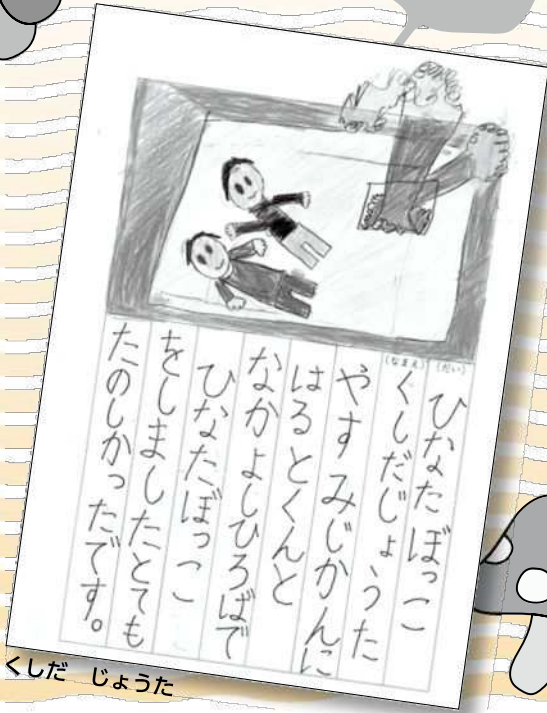 (だい)
ひなたぼっこ
(なまえ)
くしだじょうた
やすみじかんに
はるとくんと
なかよしひろばで
ひなたぼっこ
をしましたとても
たのしかったです。
くしだ じょうた